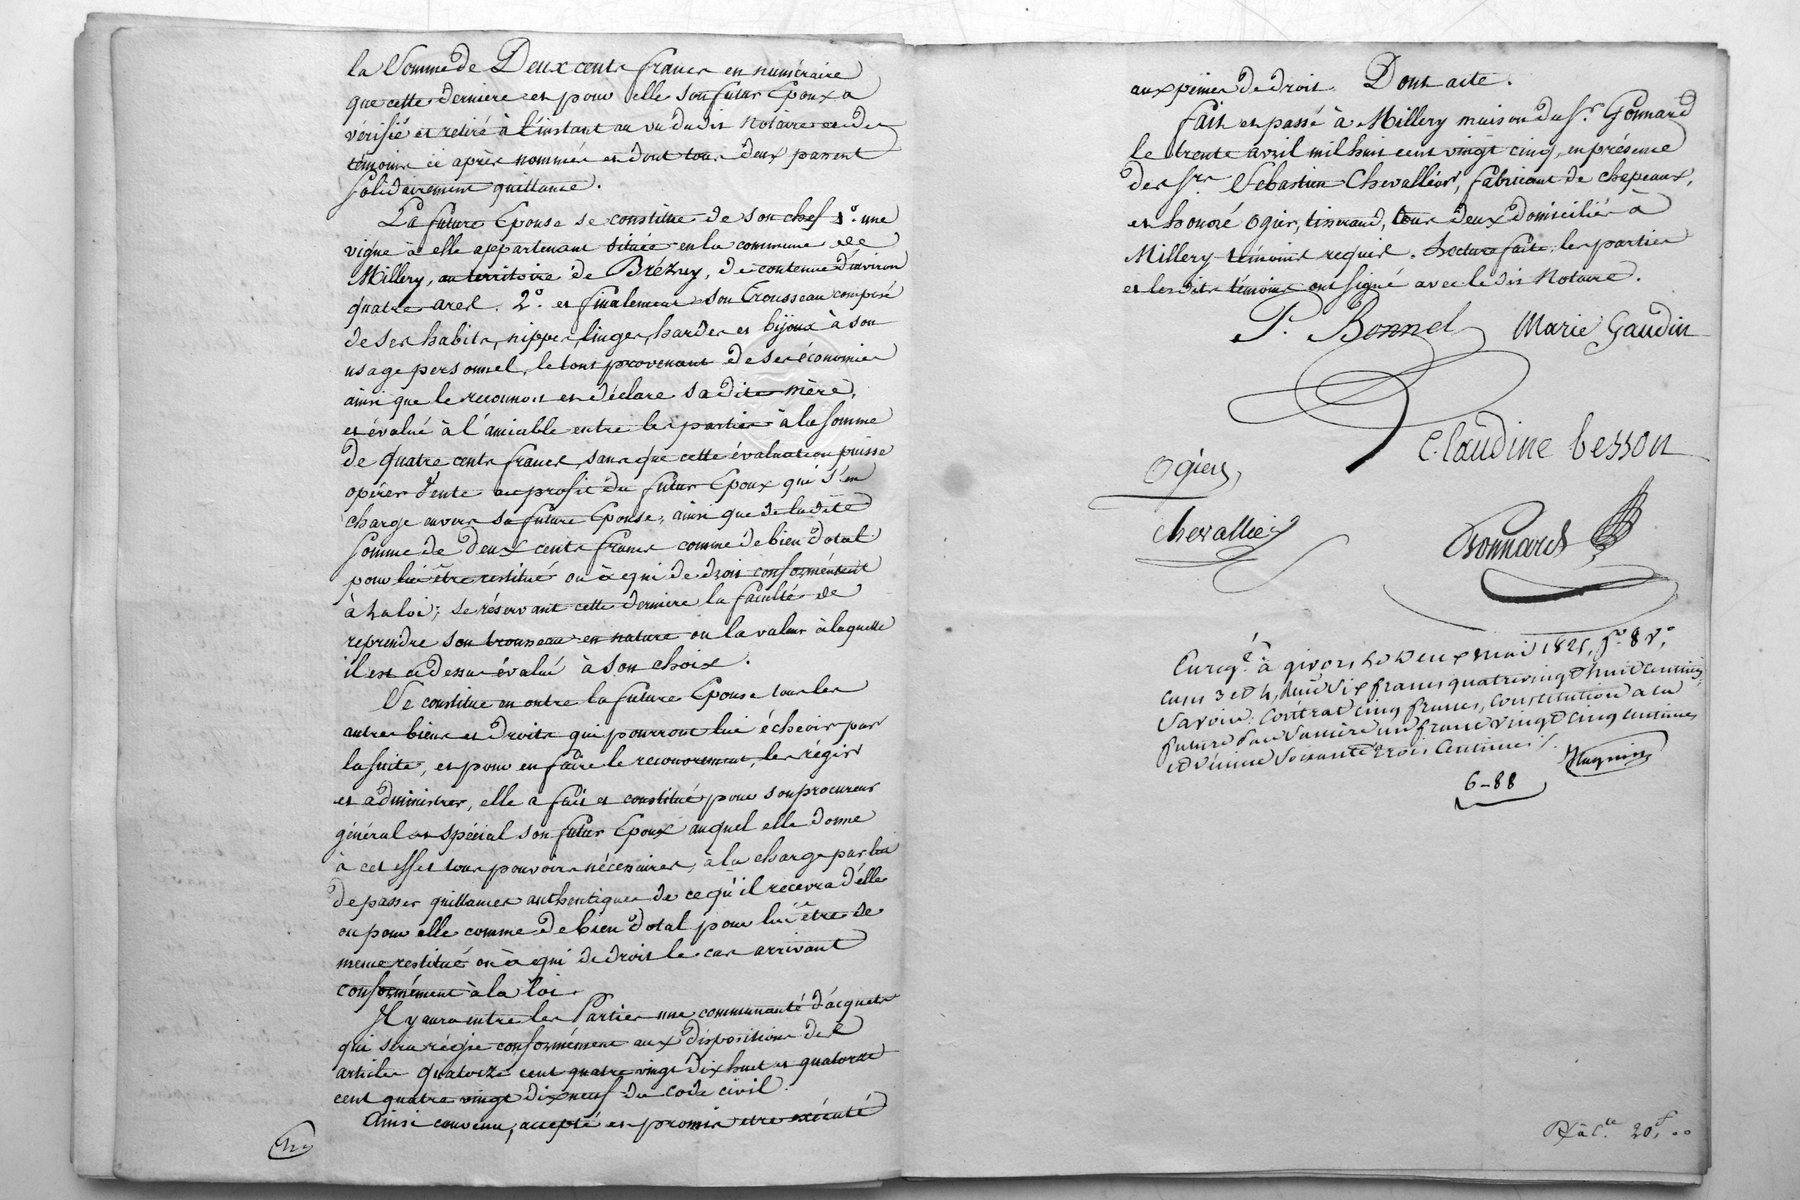 la Somme de Deux cents francs en numéraire
que cette dernière et pour elle son futur Epoux a
vérifié et retiré à l'instant au vu dudit Notaire et des
témoins ci après nommés et dont tous deux passent
solidairement quittance.
La future Epouse se constitue de son chef 1°. une
vigne à elle appartenant située en la commune de
Millery, au territoire de Brézuy, de contenue d'environ
quatre ares. 2°. et finalement son trousseau composé
de ses habits, nippes, linges, hardes et bijoux à son
usage personnel, le tout provenant de ses économies
ainsi que le reconnoit et déclare sa dite mère,
et évalué à l'amiable entre les parties à la somme
de quatre cents francs, sans que cette évaluation puisse
opérer vente au profit du futur Epoux qui s'en
charge envers sa future Epouse, ainsi que de la dite
somme de deux cents francs comme de bien dotal
pour lui être restitué ou à qui de droit conformément
à la loi; se réservant cette dernière la faculté de
reprendre son trousseau en nature ou la valeur à laquelle
il est ci dessus évalué à son choix.
Se constitue en outre la future Epouse tous les
autres biens et droits qui pourront lui échéoir par
la suite, et pour en faire le recouvrement, les régir
et administrer, elle a fait et constitué pour son procureur
général et spécial son futur Epoux auquel elle donne
à cet effet tous pouvoirs nécessaires, à la charge par lui
de passer quittances authentiques de ce qu'il recevra d'elle
ou pour elle comme de bien dotal pour lui être de
meme restitué ou à qui de droit le cas arrivant
conformément à la loi.
Il y aura entre les Parties une communauté d'acquets
qui sera régie conformément aux dispositions des
articles quatorze cent quatre vingt dix huit et quatorze
cent quatre vingt dix neuf du code civil.
Ainsi convenu, accepté et promis etre exécuté
aux peines de droit. Dont acte.
fait et passé à Millery maison du Sr. Gonnard
le trente avril mil huit cent vingt cinq, en présence
des Srs Sébastien Chevallier, fabricant de chapeaux,
et honoré Ogier, tisserand, tous deux domiciliés à
Millery témoins requis. Lecture faite, les parties
et lesdits témoins ont signé avec ledit Notaire.
P. Bonnel Marie Gaudin
Claudine besson
Ogier
Chevallier
Gonnard
Enregé. à givors le deux mai 1825, fo. 8 vo.
cases 3 et 4, reçu six francs quatre vingt huit centimes,
savoir: contrat cinq francs, constitution a la
future par sa mère un franc vingt cinq centimes
et dixième soixante trois centimes.
6-88
20f,,00